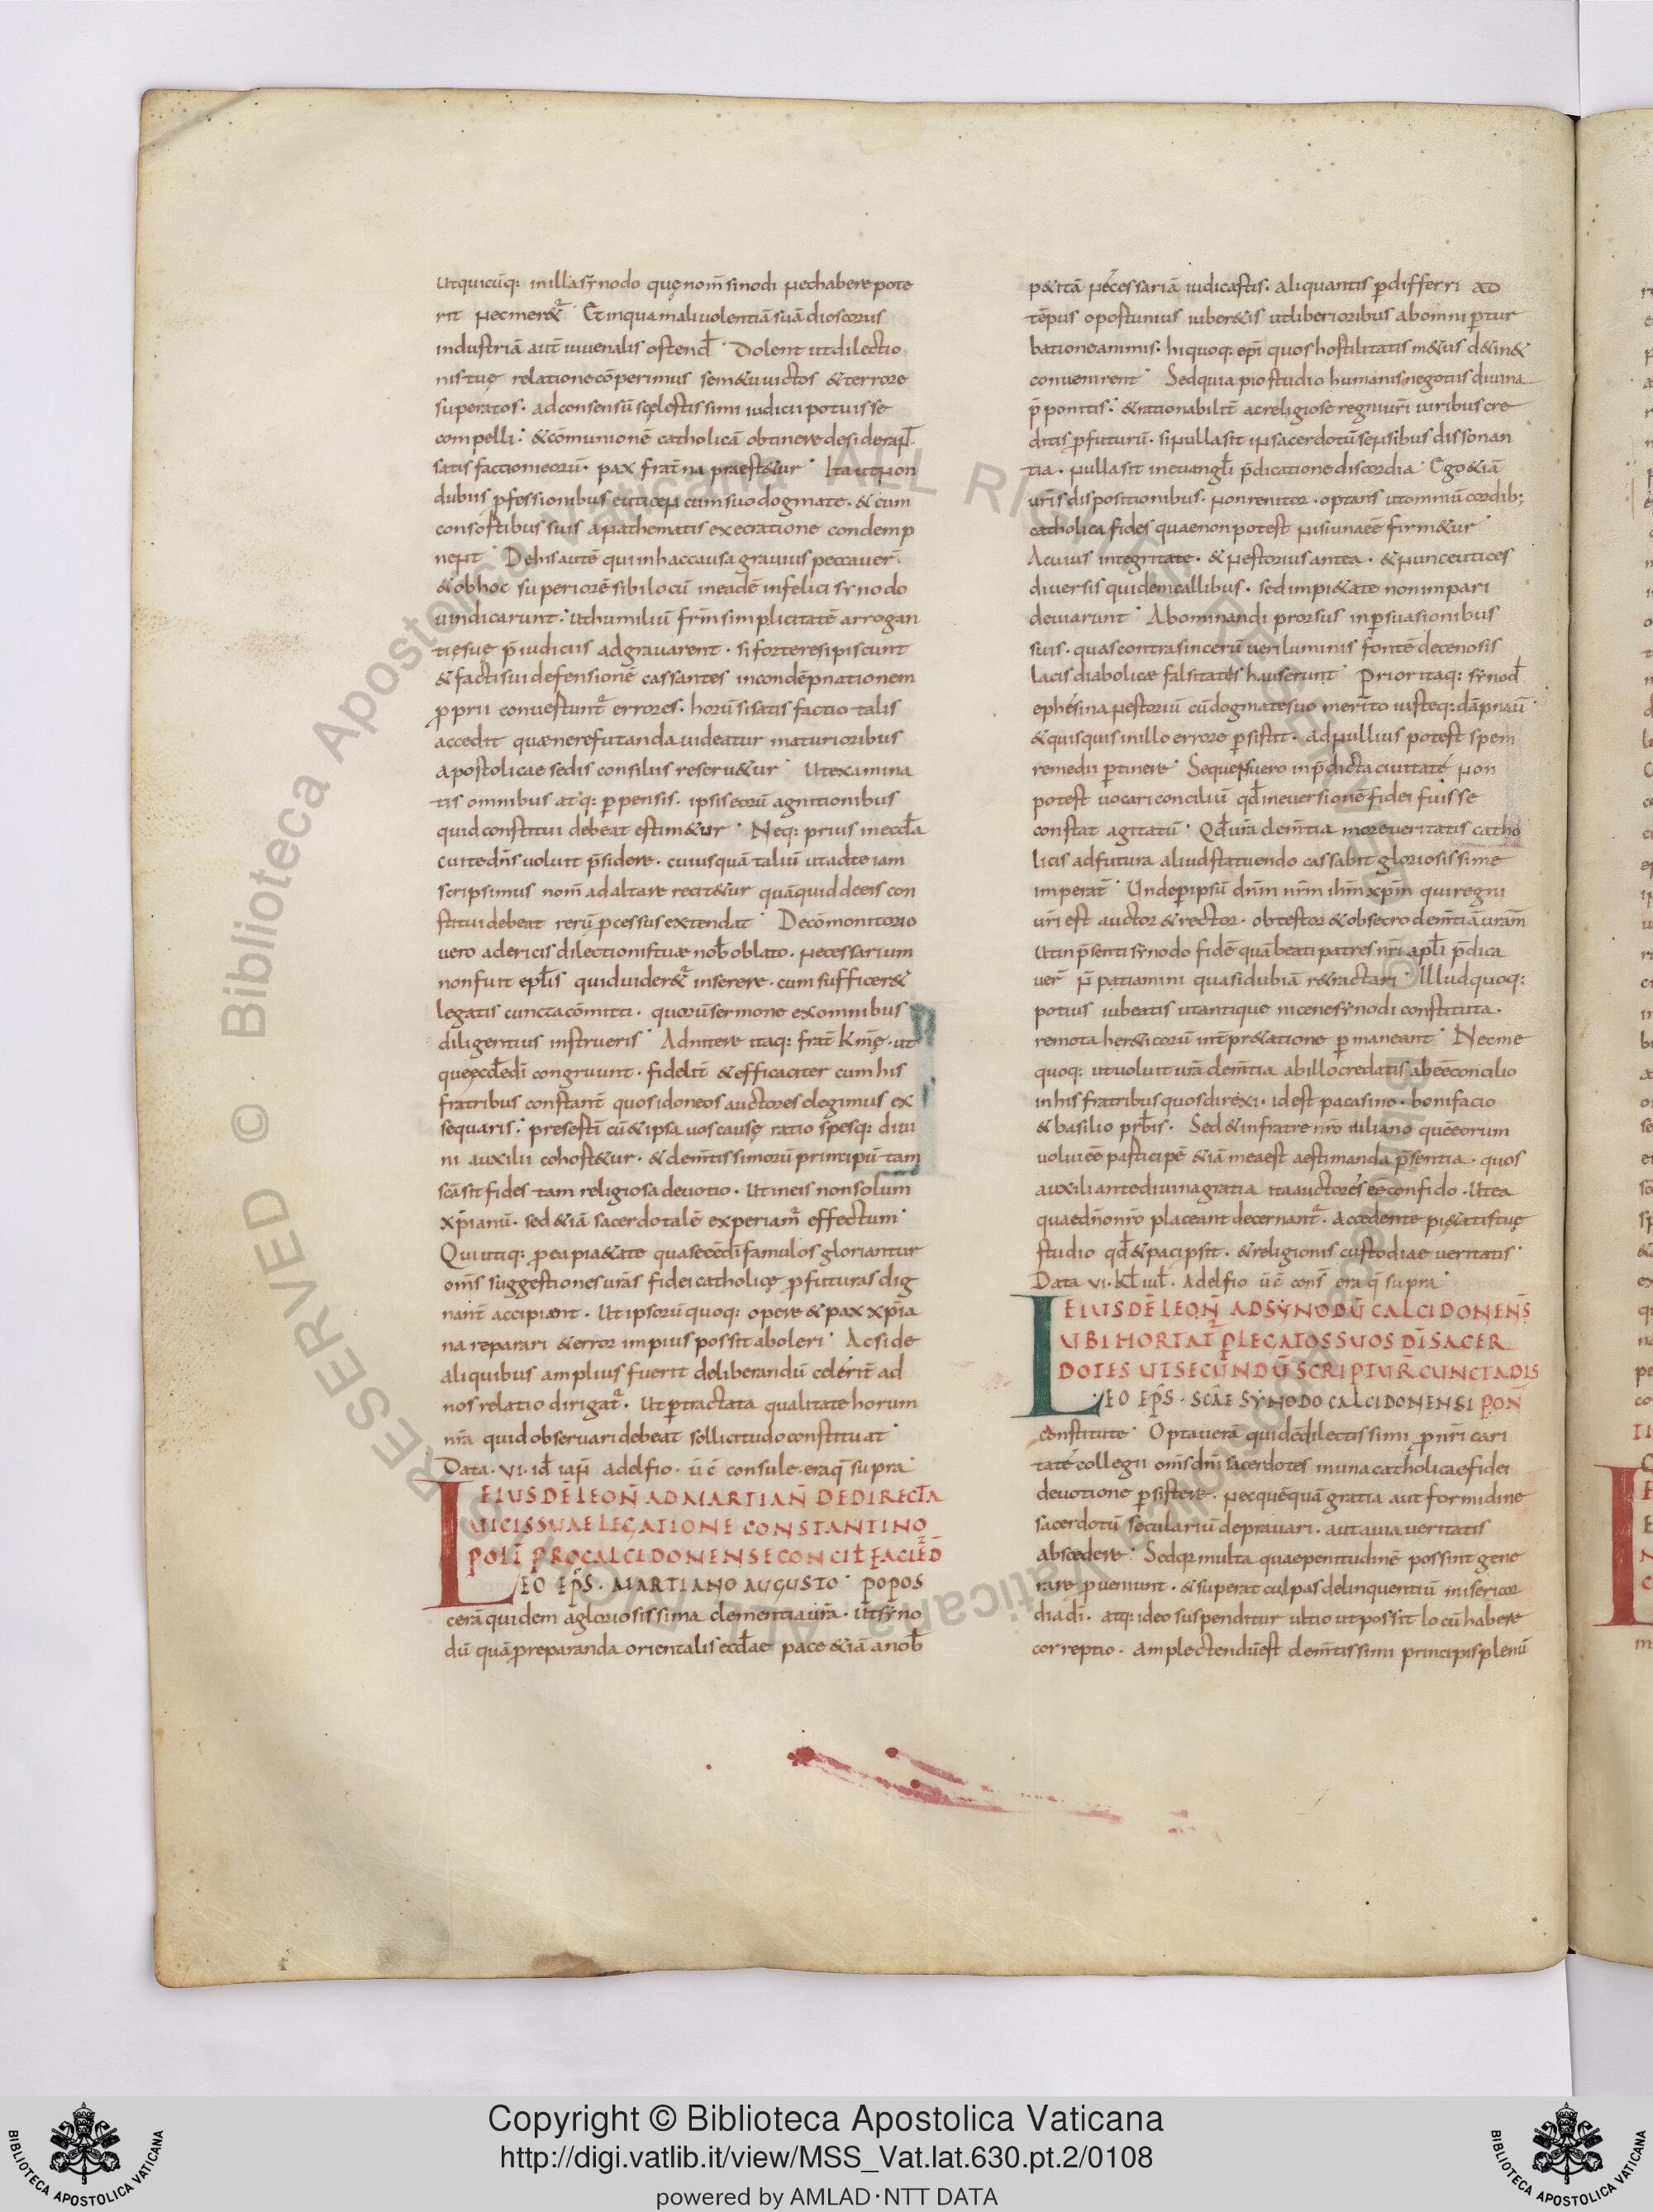 utquicūq: inillasẏnodo quę nom̄ sinodi nechabere pote
rit necmer&ur. Et inqua maliuolentiā suā dioscorus
industriā aut̄ iuuenalis ostend̄. Dolent utdilectio
nistuę relatione cōperimus sem&uuictos &terrore
superatos. adconsensū scęlestissimi iudicii potuisse
compelli. &cōmunionē catholicā obtinere desiderant
satisfactionieorū. pax frat̄na praest&ur. Ita utnon
dubiis p̄fessionibus euticen cumsuo dogmate. & cum
consortibus suis anathematis execratione condemp
nent. Dehis autē quiinhaccausa grauius peccauer̄
&obhoc superiorē sibilocū ineadē infelici sẏnodo
uindicarunt. uthumiliū fr̄m simplicitatē arrogan
tięsuę p̄iudiciis adgrauarent. si forteresipiscunt
& factisui defensionē cassantes incondēpnationem
proprii conuertunt̄ errores. horū sisatisfactio talis
accedit quænerefutanda uideatur maturioribus
apostolicae sedis consiliis reseru&ur. Utexamina
tis omnibus atq: perpensis. ipsis eorū agnitionibus
quid constitui debeat estim&ur. Neq: prius inecct̄a
cuitedn̄s uoluit p̄sidere. cuiusquā taliū utadte iam
scripsimus nom̄ adaltare recit&ur quāquid deeis con
stitui debeat rerū processus extendat. Decōmonitorio
uero adericis dilectionistuæ nob̄ oblato. necessarium
nonfuit epl̄is quiduider&ur inserere. cum sufficer&
legatis cuncta cōmitti. quorū sermone exomnibus
diligentius instrueris. Adnitere itaq: frat̄ kmę. ut
quęęccl̄edī congruunt. fidelit̄ & efficaciter cum his
fratribus constant̄ quos idoneos auctores elegimus ex
sequaris. presertī cū&ipsa uos causę ratio spesq: diui
ni auxilii cohort&ur. & clem̄tissimorū principū tam
scāsit fides tam religiosa deuotio. Ut ineis nonsolum
xp̄ianū. sed &iā sacerdotalē experiam̄ effectum.
Qui utiq: proeapia&ate quase eēdī famulos gloriantur
om̄s suggestionesur̄as fidei catholicę profuturas dig
nant̄ accipiant. Ut ipsorū quoq: opere & pax xp̄ia
na reparari & error impius possit aboleri. Acside
aliquibus amplius fuerit deliberandū celérit̄ ad
nos relatio dirigat̄. Ut pertractata qualitate horum
nr̄a quid obseruari debeat sollicitudo constituat.
Data. VI. id̄ iań adelfio. ū c̄ consule. eraq̄ supra.
EIUSDĒ LEOÑ AD MARTIAÑ DEDIRECTA
UICIS SUAE LEGATIONE CONSTANTINO
POLĪ PRO CALCIDONENSE CONCIŁ FACIĒD
LEO EPS̄. MARTIANO AUGUSTO. POPOS
cerā quidem āgloriosissima clementiaur̄a. Ut sẏno
dū quā preparanda orientalis eccl̄ae pace &iā anob̄
p&itā nécessariā iudicastis. aliquantis p̄differri ad
tēpus oportunius iuber&is utliberioribus abomni p̄tur
batione animis. hi quoq: epī quos hostilitatis m&us d&in&
conuenirent. Sed quia pio studio humanis negotiis diuina
p̄ponitis. & rationabilit̄ acreligiose regniur̄i uiribus cre
ditis p̄futurū. sinulla sit insacerdotū sensibus dissonan
tia. nulla sit in euangl̄i p̄dicatione discordia. Ego&iā
ur̄is dispositionibus. nonrenitor. optans utomniū cordib;
catholica fides quaenonpotest nisiunaeē firm&ur.
Acuius integritate. & nestorius antea. & nunc eutices
diuersis quidemcallibus. sed impi&ate nonimpari
deuiarunt. Abominandi prorsus inpersuasionibus
suis. quas contra sincerū ueri luminis fontē decenosis
lacis diabolicæ falsitatis hauserunt. Prior itaq: sẏnod̄
ephésina nestoriū cūdogmatesuo merito iusteq: dāpnaū.
& quisquis inillo errore persistit. adnullius potest spem
remedii pertinere. Sequens uero inp̄dicta ciuitaté non
potest uocari conciliū qd̄ineuersionē fidei fuisse
constat agitatū. Qd̄ur̄a clem̄tia more ueritatis catho
licis adfutura aliud statuendo cassabit gloriosissime
imperat̄. Unde peripsū dn̄m nr̄m ihm̄ xpm̄ qui regni
ur̄i est auctor & rector. obtestor & obsecro clem̄tiā ur̄am
utinp̄senti sẏnodo fidē quā beati patres nr̄i apl̄i p̄dica
uer̄ n̄ patiamini quasi dubiā r&ractari. Illud quoq:
potius iubeatis utantique nicene sẏnodi constituta.
remota her&icorū int̄pr&atione permaneant. Necme
quoq: utuoluit ur̄a clem̄tia abillo credatis abeēconcilio
inhis fratribus quosdirexi. idest pacasino. bonifacio
& basilio prb̄is. Sed & infratre nr̄o iuliano quēeorum
uolui eē participē &iā meaest aestimanda p̄sentia. quos
auxiliante diuina gratia itaauctorés eē confido. Utea
quaedn̄onr̄o placeant decernant̄. accedente pi&atistuę
studio qd̄ & pacipsit. & religionis custodiae ueritatis.
Data VI. kl̄ iul̄. Adelfio ū c̄ cons̄ era q̄ supra.
EIUSDĒ LEOÑ AD SẎNODŪ CALCIDONENS̄
UBI HORTAT̄ P LEGATOS SUOS DĪ SACER
DOTES UT SECUNDŪ SCRIPTUR̄ CUNCTA DIS
LEO EPS̄. SCĀE SẎNODO CALCIDONENSI PON̄
constitute. Optauerā quidēdilectissimi pronr̄i cari
taté collegii om̄sdn̄i sacerdotes inuna catholicaefidei
deuotione persistere. necquēquā gratia aut formidine
sacerdotū seculariū deprauari. aut auia ueritatis
abscedere. Sedqr multa quaepenitudinē possint gene
rare proueniunt. & superat culpas delinquentiū misericor
diadī. atq: ideo suspenditur ultio utpossit locū habere
correptio. amplectendūest clem̄tissimi principisplenū
Copyright © Biblioteca Apostolica Vaticana
http://digi.vatlib.it/view/MSS_Vat.lat.630.pt.2/0108
powered by AMLAD·NTT DATA
BIBLIOTECA APOSTOLICA VATICANA
BIBLIOTECA APOSTOLICA VATICANA